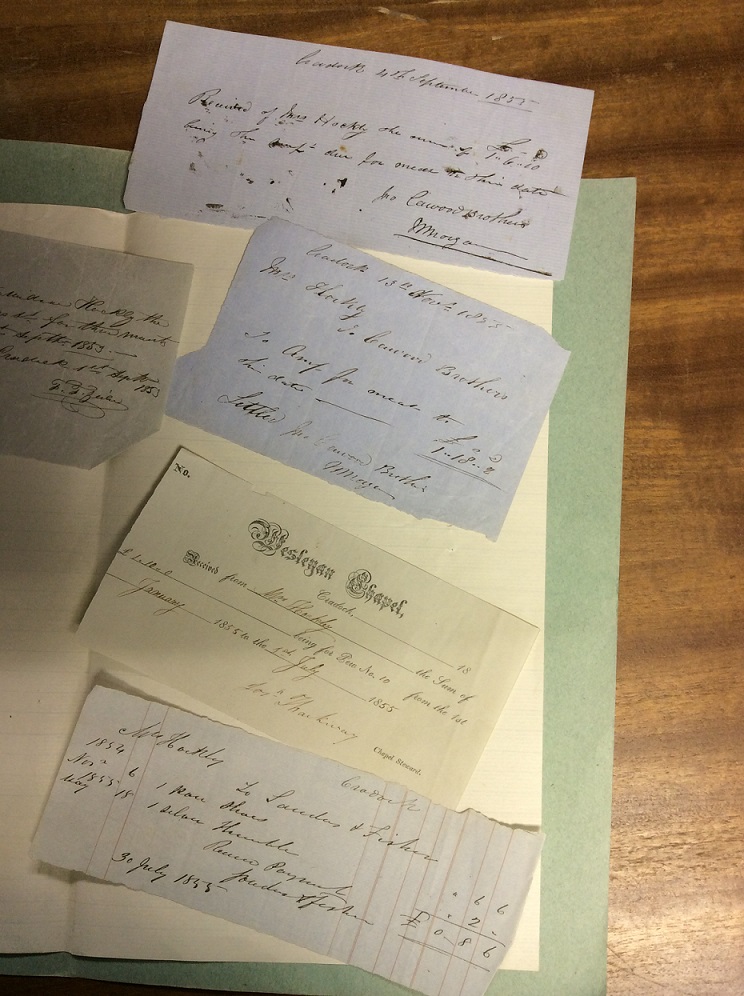 Cradock 4th September 1855
Received of Mrs Hockly the sum of £ s d
1-6-10
being the amt due for meat to this date
pro Cawood Brothers
WMorgan
Hockly the
for three months
Septbr 1853
Cradock 1st Septbr 1853
Cradock 13th Novr 1855
Mrs Hockly
To Cawood Brothers
To Amt for meat to
this date £ s d
1-18-2
Settled pro Cawood Brothers
WMorgan
No.
Wesleyan Chapel,
Cradock, 18
Received from Mrs Hockly the Sum of
being for Pew No. 10 from the 1st
January 1855 to the 1st July 1855
Chapel Steward.
Mrs Hockly Cradock
To Sanders & Fisher
1854
Novr 6 1 Pair Shoes " 6 6
1855
May 18 1 Silver Thimble " 2 -
£ 0-8-6
Payment
30 July 1855 Sanders & Fisher